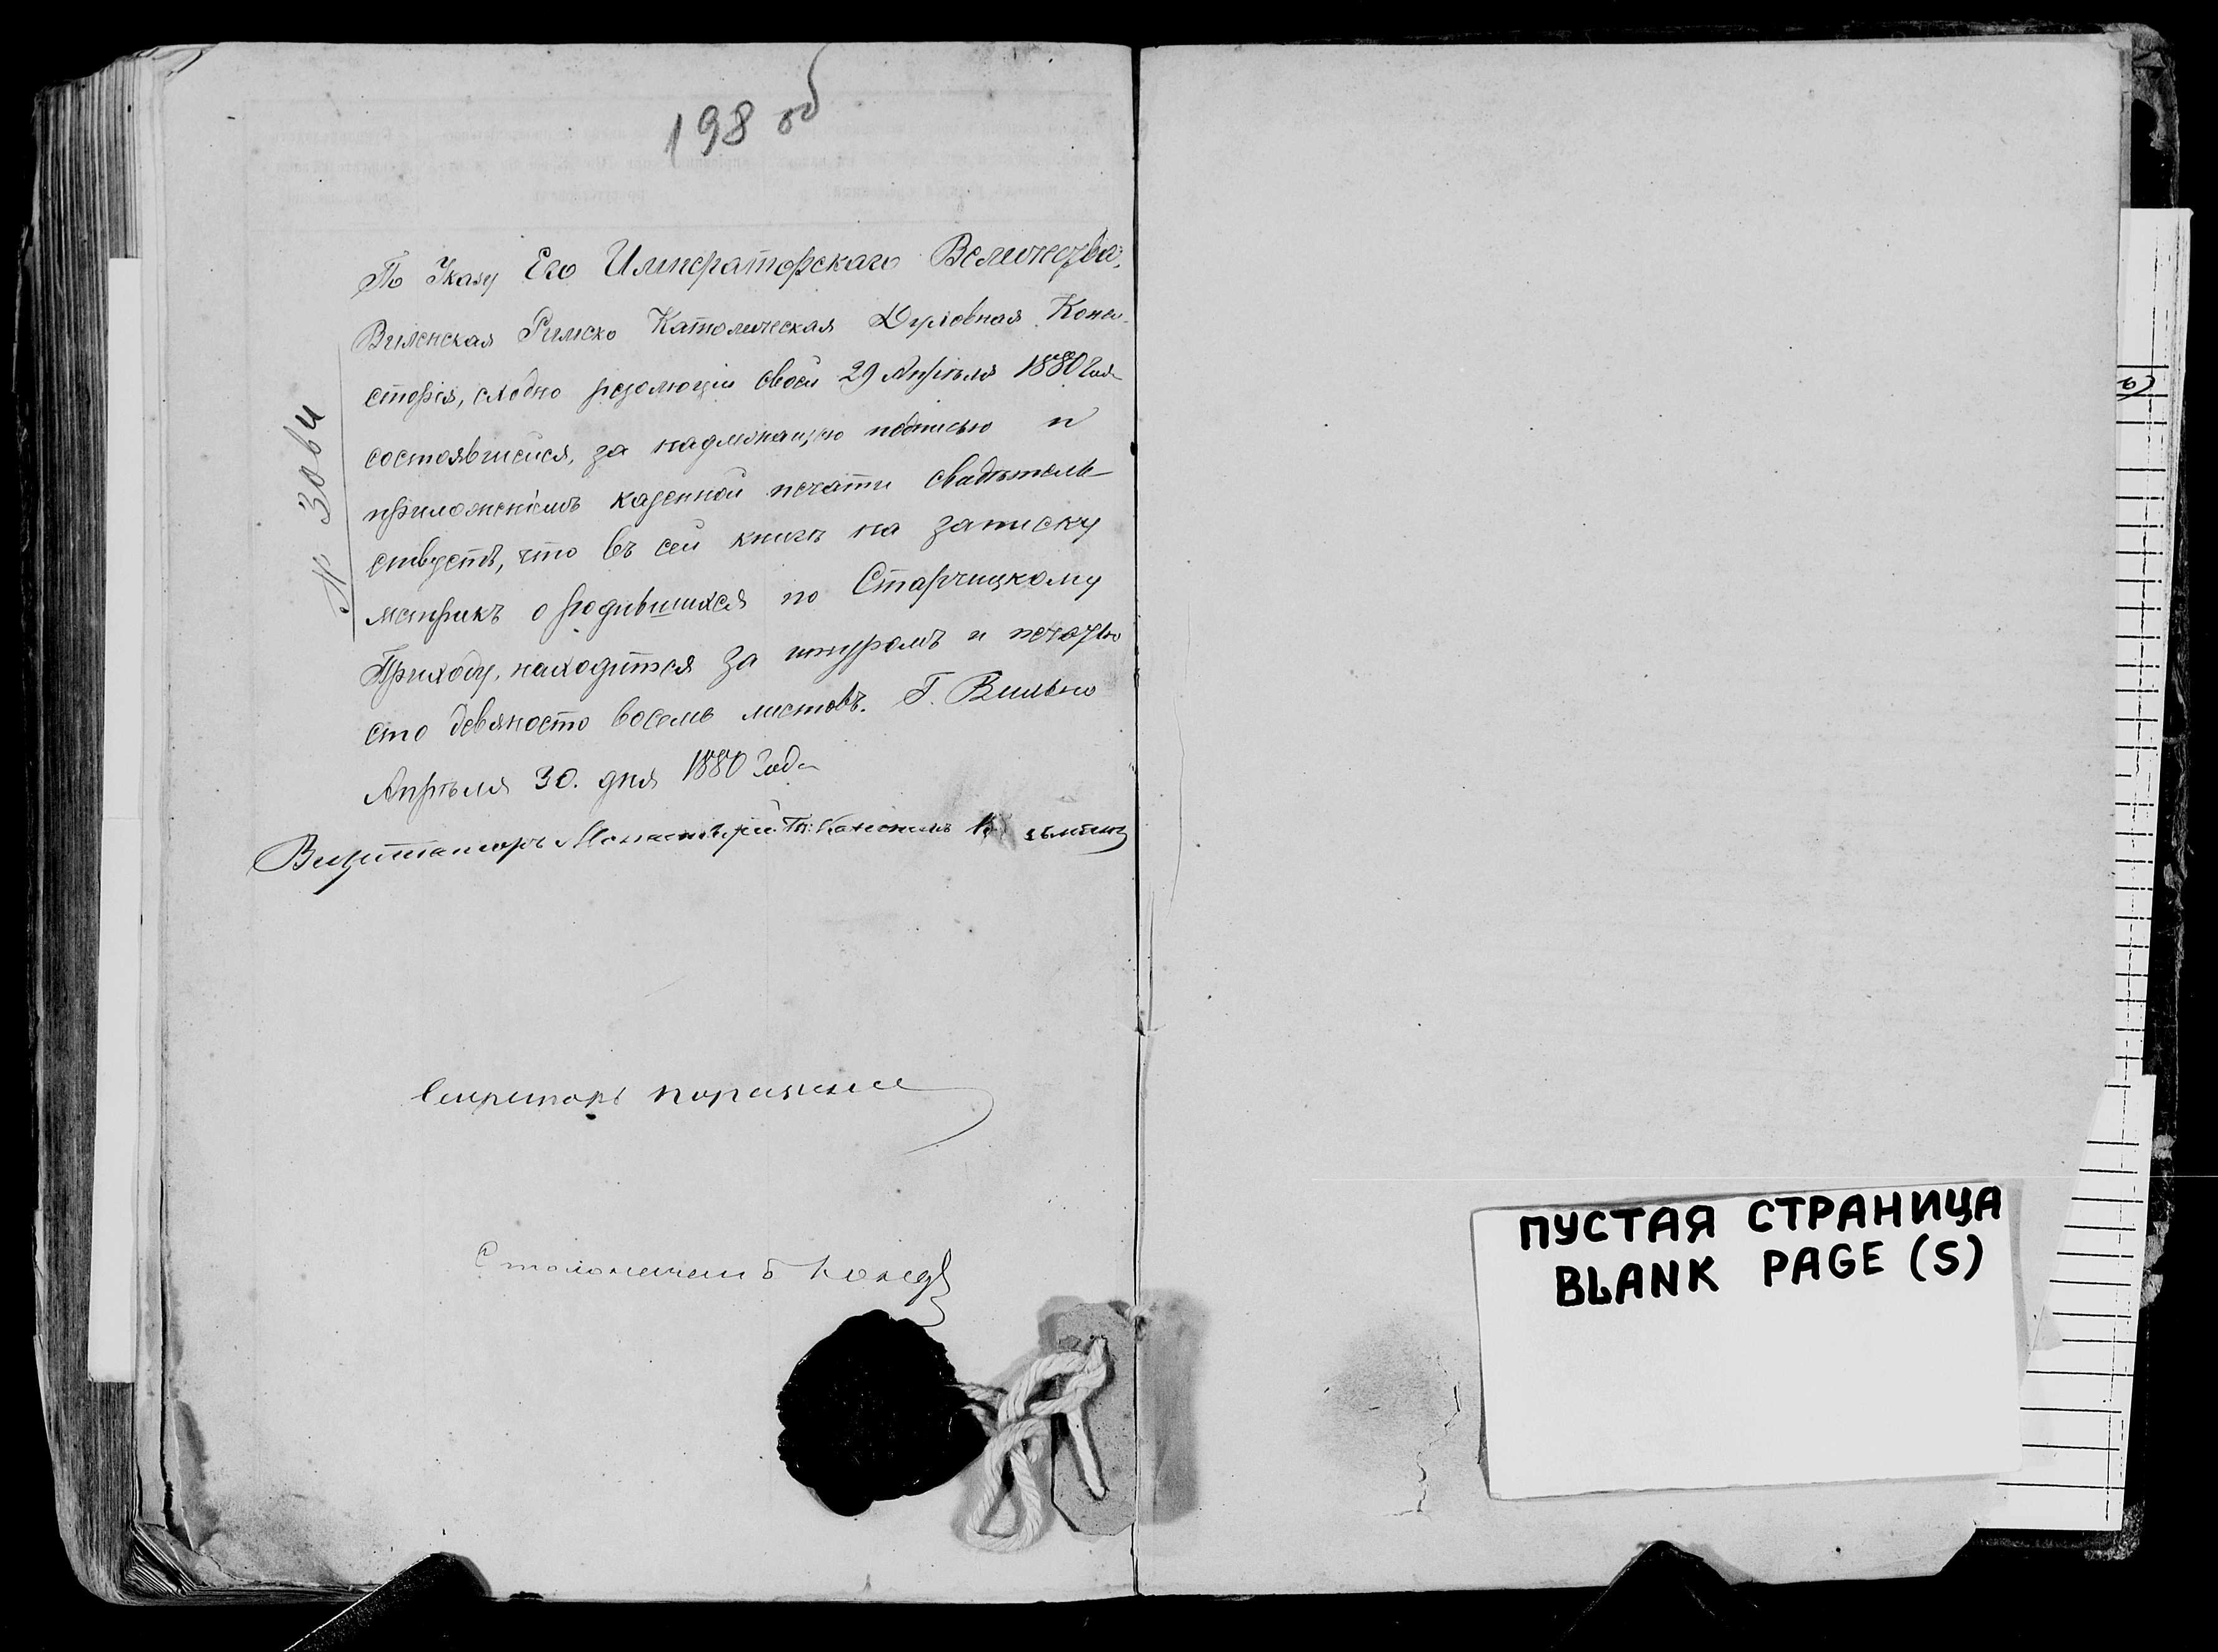 198 об
По Указу Его Императорскаго Величества,
Виленская Римско Католическая Духовная Конси-
сторія, сходно резолюціи своей 29 Апрѣля 1880 года
состоявшейся, за надлежащею подписью и
приложеніемъ казенной печати свидѣтель-
ствуетъ, что въ сей книгѣ на записку
метрикъ о родившихся по Старчицкому
Приходу, находится за шнуромъ и печатью
сто девяносто восемь листовъ. Г. Вильно
Апрѣля 30. дня 1880 года
Визитаторъ Монастырей
Секретарь
Столоначальникъ
№
ПУСТАЯ СТРАНИЦА
BLANK PAGE (S)